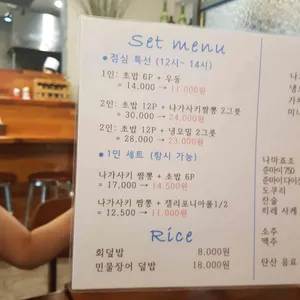 Set menu
• 점심 특선 (12시~ 14시)
1인: 초밥 6P + 우동
= 14,000 → 11 000원
2인: 초밥 12P + 나가사키짬뽕 2그릇
= 30,000 → 24.000원
2인: 초밥 12P + 냉모밀 2그릇
= 28,000 → 23 000원
• 1인 세트 (항시 가능)
나가사키 짬뽕 + 초밥 6P
= 17,000 → 14.500원
나가사키 짬뽕 + 캘리포니아롤1/2
= 12,500 → 11.000원
Rice
회덮밥 8.000원
민물장어 덮밥 18.000원
나마죠죠
준마이750
준마이다이
도쿠리
잔술
히레 사케
소주
맥주
탄산 음료